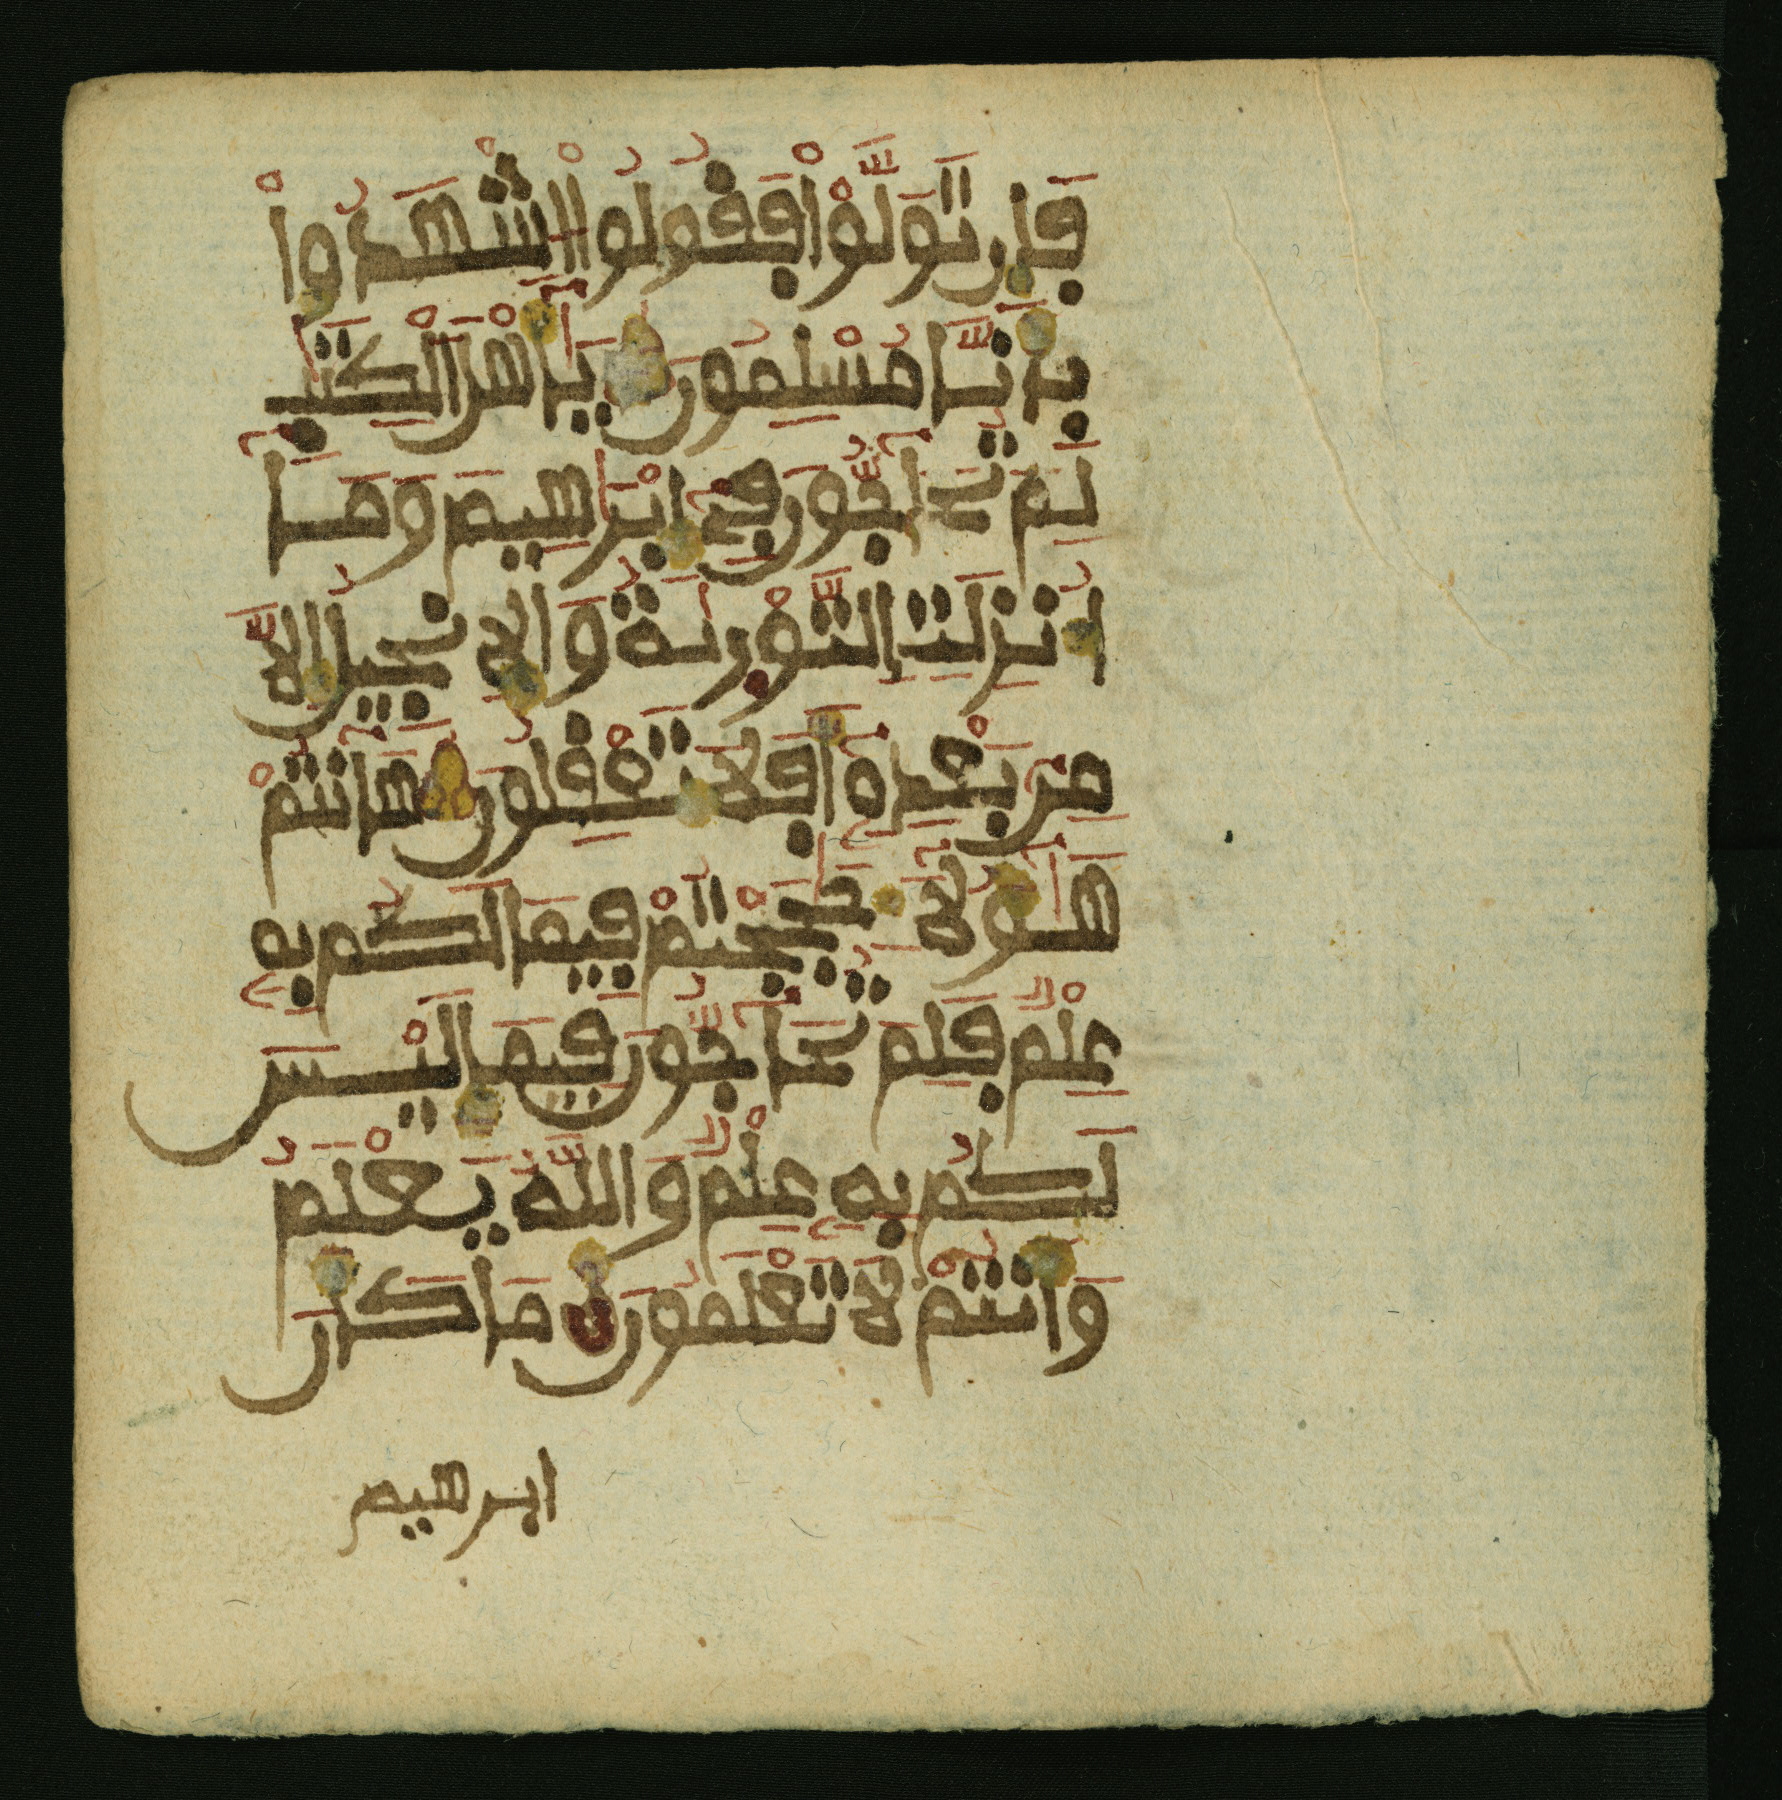 فَإِن تَوَلَّوْاْ فَقُولُواْ اُشْهَدُواْ
بِأَنَّا مُسْلِمُونَ يَٰٓأَهْلَ اَلْكِتَٰبِ
لِمَ تُحَآجُّونَ فِےٓ إِبْرَٰهِيمَ وَمَآ
أُنزِلَتِ اِلتَّوْرَىٰةُ وَالِانجِيلُ إِلَّا
مِنۢ بَعْدِهِۦٓ أَفَلَا تَعْقِلُونَ هَٰٓأَنتُمْ
هَٰٓؤُلَآءِ حَٰجَجْتُمْ فِيمَا لَكُم بِهِۦ
عِلْمٌ فَلِمَ تُحَآجُّونَ فِيمَا لَيْسَ
لَكُم بِهِۦ عِلْمٌ وَاللَّهُ يَعْلَمُ
وَأَنتُمْ لَا تَعْلَمُونَ مَا كَانَ
ابرهيم